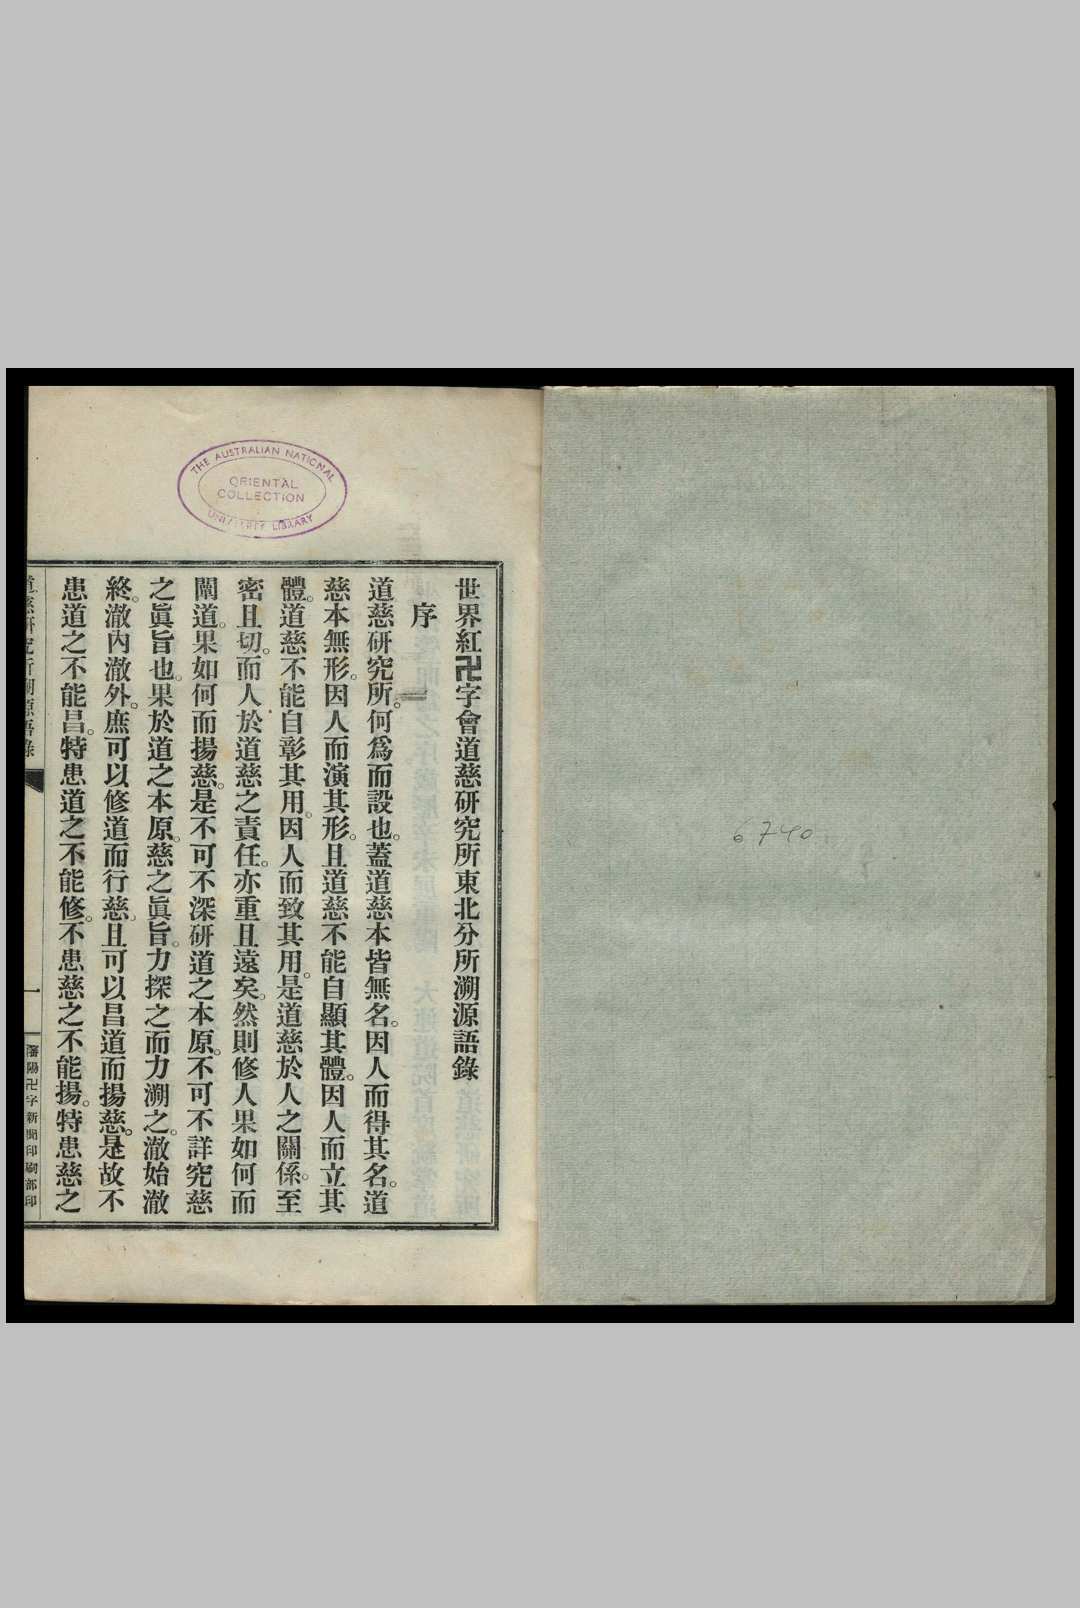 6740
世界紅卍字會道慈研究所東北分所溯源語錄
序一
道慈研究所。何爲而設也。蓋道慈本皆無名。因人而得其名。道
慈本無形。因人而演其形。且道慈不能自顯其體。因人而立其
體。道慈不能自彰其用。因人而致其用。是道慈於人之關係。至
密且切。而人於道慈之責任。亦重且遠矣。然則修人果如何而
闡道。果如何而揚慈。是不可不深研道之本原。不可不詳究慈
之眞旨也。果於道之本原。慈之眞旨。力探之而力溯之。澈始澈
終。澈內澈外。庶可以修道而行慈。且可以昌道而揚慈。是故不
患道之不能昌。特患道之不能修。不患慈之不能揚。特患慈之
道慈研究所溯源語錄
一
瀋陽卍字新聞印刷部印
THE AUSTRALIAN NATIONAL
ORIENTAL
COLLECTION
UNIVERSITY LIBRARY